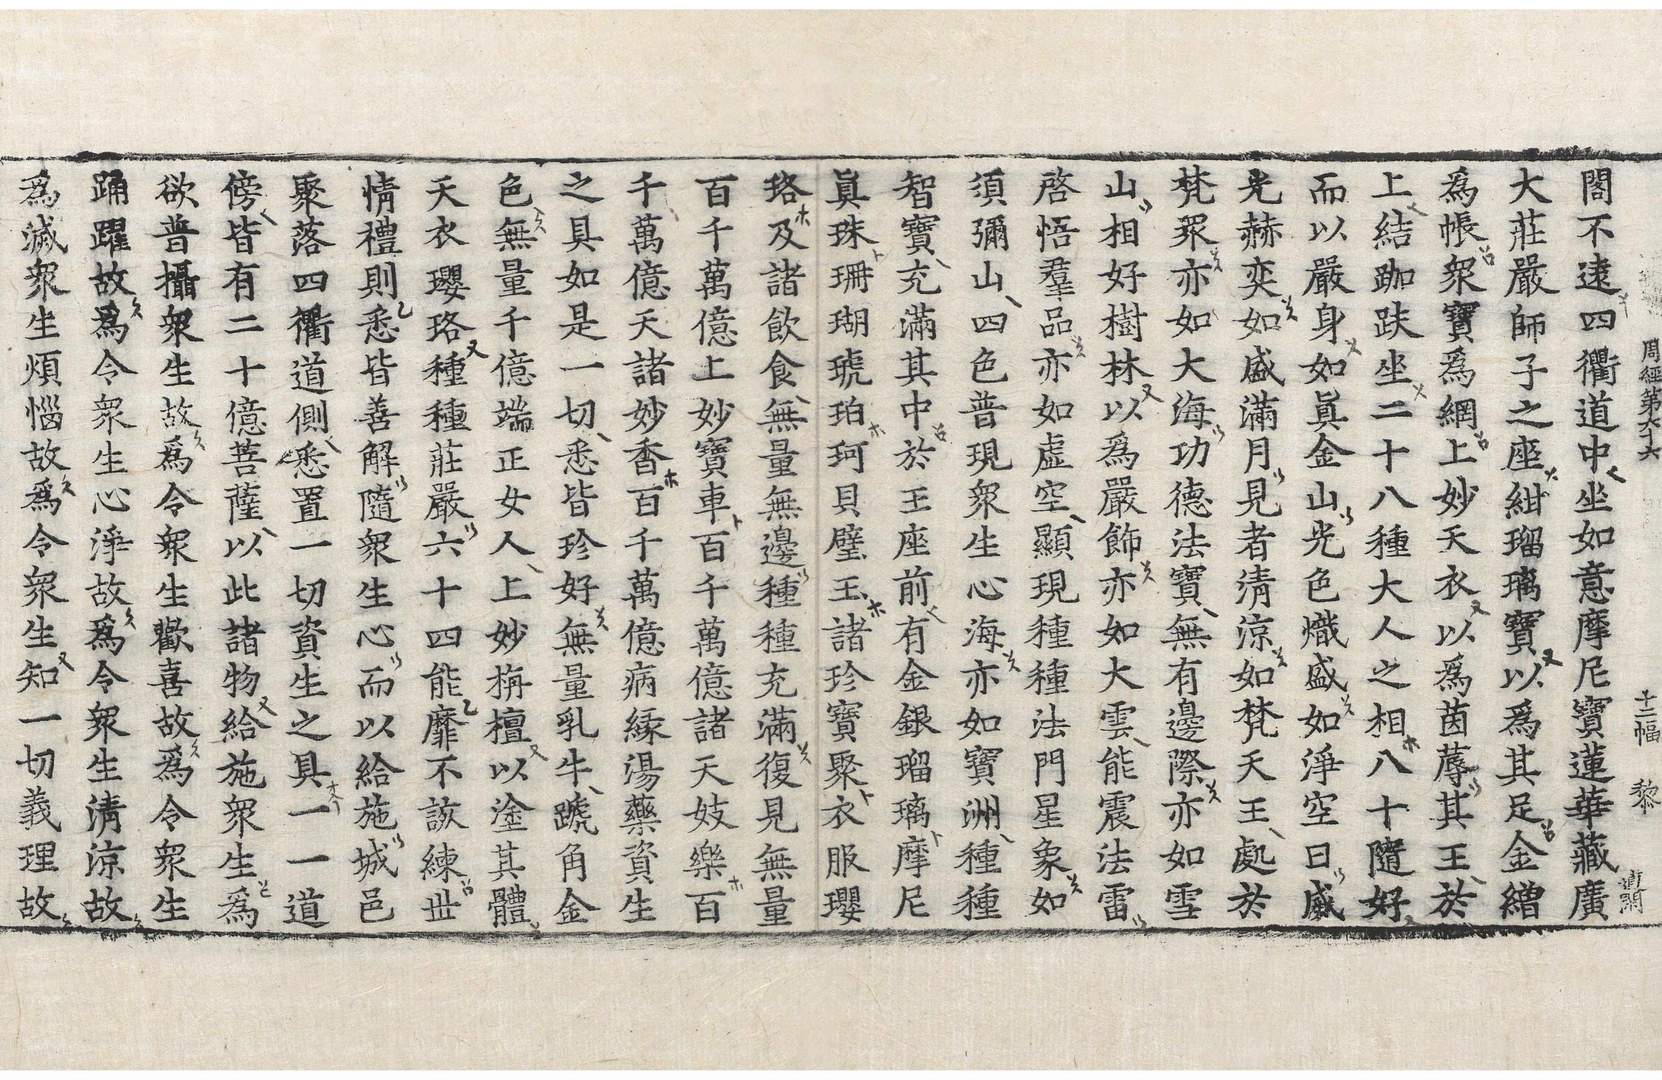 周經第六十六 十二幅 黎
閣不遠四衢道中坐如意摩尼寶蓮華藏廣
大莊嚴師子之座紺瑠璃寶以爲其足金繒
爲帳衆寶爲網上妙天衣以爲茵蓐其王於
上結跏趺坐二十八種大人之相八十隨好
而以嚴身如眞金山光色熾盛如淨空日威
光赫奕如盛滿月見者清涼如梵天王處於
梵衆亦如大海功德法寶無有邊際亦如雪
山相好樹林以爲嚴飾亦如大雲能震法雷
啓悟羣品亦如虛空顯現種種法門星象如
須彌山四色普現衆生心海亦如寶洲種種
智寶充滿其中於王座前有金銀瑠璃摩尼
眞珠珊瑚琥珀珂貝璧玉諸珍寶聚衣服瓔
珞及諸飲食無量無邊種種充滿復見無量
百千萬億上妙寶車百千萬億諸天妓樂百
千萬億天諸妙香百千萬億病緣湯藥資生
之具如是一切悉皆珍好無量乳牛蹏角金
色無量千億端正女人上妙栴檀以塗其體
天衣瓔珞種種莊嚴六十四能靡不該練世
情禮則悉皆善解隨衆生心而以給施城邑
聚落四衢道側悉置一切資生之具一一道
傍皆有二十億菩薩以此諸物給施衆生爲
欲普攝衆生故爲令衆生歡喜故爲令衆生
踊躍故爲令衆生心淨故爲令衆生清涼故
爲滅衆生煩惱故爲令衆生知一切義理故